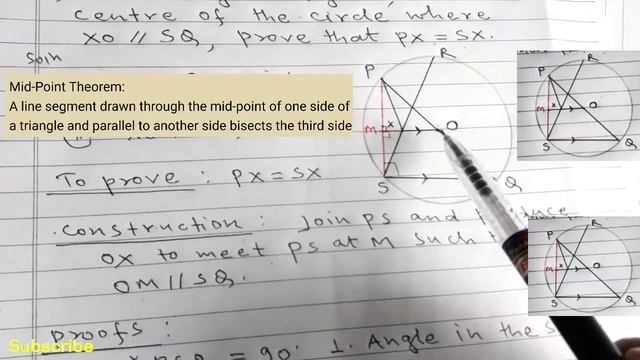 centre of the circle where
XO // SQ, prove that PX = SX.
Soln
Mid-Point Theorem:
A line segment drawn through the mid-point of one side of
a triangle and parallel to another side bisects the third side
P
R
M
X
O
S
Q
P
R
M
X
O
S
Q
P
R
M
X
O
S
Q
To prove : PX = SX
Construction : Join PS and
OX to meet PS at M such
OM // SQ.
Proofs :
= 90° 1. Angle in the s
Subscribe